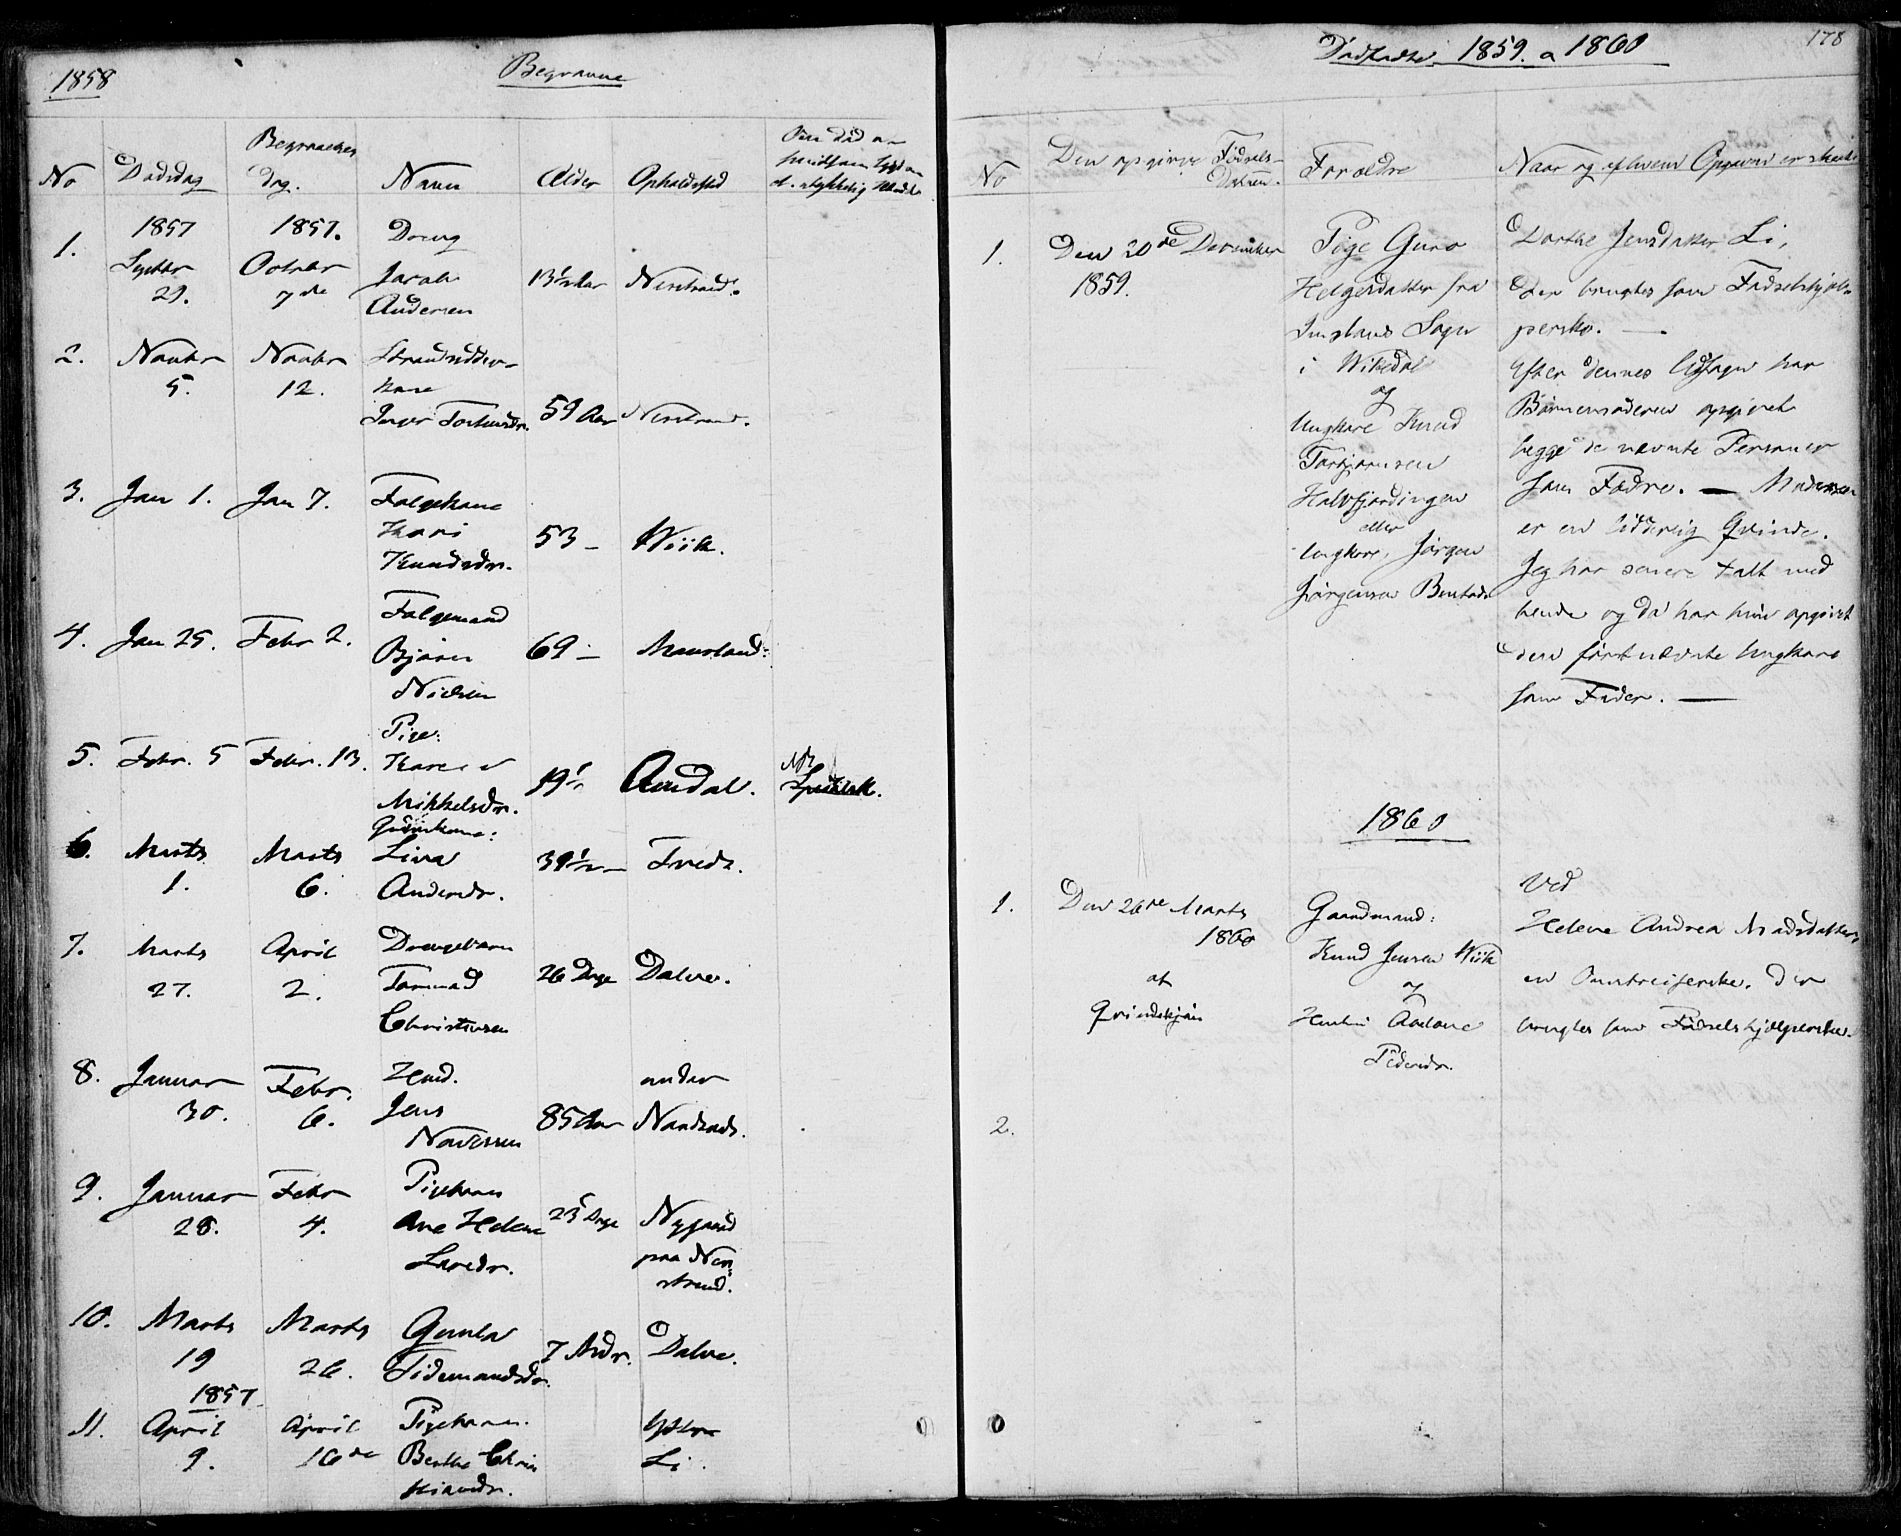 1858
Begravne
No
Dødsdag
Begravelses
dag.
Navn
Alder
Opholdssted
Om død af
1.
1857
Septbr
29.
1857.
October
7de
Dreng
Jacob
Andersen
13½ Aar
Nerstrand.
2.
Novbr
5.
Novbr
12.
Strandsidder-
kone
Inger
59 Aar
Nerstrand.
3.
Jan 1.
Jan 7.
Følgekone
Kari
Knudsdr.
53 —
Wiik.
4.
Jan 25.
Febr 2.
Følgemand
Bjørn
Nielsen
69 —
5.
Febr. 5
Febr. 13.
Pige:
Karen
Mikkelsdr.
Amdal.
6.
Marts
1.
Marts
6.
Lina
Andersdr.
39½ —
Tveds.
7.
Marts
27.
April
2.
Drengebarn
Tormod
Christensen
26 Dage
Dalve.
8.
Januar
30.
Febr.
6.
Jens
85 Aar
under
9.
Januar
28.
Febr
4.
Pigebarn
Ane Helene
Larsdr.
Dage
Nygaard
paa Ner-
strand.
10.
Marts
19
Marts
26.
Gunla
Tidemandsdr.
7 Aar.
Dalve.
1857
11.
April
9.
April
16de
Pigebarn
Berthe Chris
tiansdr.
Ystre
Li.
Dødfødte 1859. a 1860
178
No
Den opgivne Fødsels-
Datum.
Forældre
Naar og af hvem Opgaven er skeet
1.
Den 20de December
1859.
Pige Guro
Helgesdatter fra
Imslands Sogn
i Wikedal
og
Ungkarl Knud
Torbjørnsen
Halvfjordingen
eller
Ungkarl, Jørgen
Jørgensen
Dorthe Jensdatter Li,
der brugtes som Fødselshjæl-
perske. —
Efter dennes Udsagn har
Barnemoderen opgivet
begge de nævnte Personer
som Fædre. — Moderen
er en liderlig Qvinde.
Jeg har senere talt med
hende og da har hun opgivet
den førstnævnte Ungkarl
som Fader. —
1860
1.
Den 26de Marts
1860
af
Qvindekjøn
Gaardmand:
Knud Jensen Wiik
og
Pedersdr.
Ved
Helene Andrea Madsdatter,
en Omstreiferske, der
brugtes som Fødselshjælperske.
2.